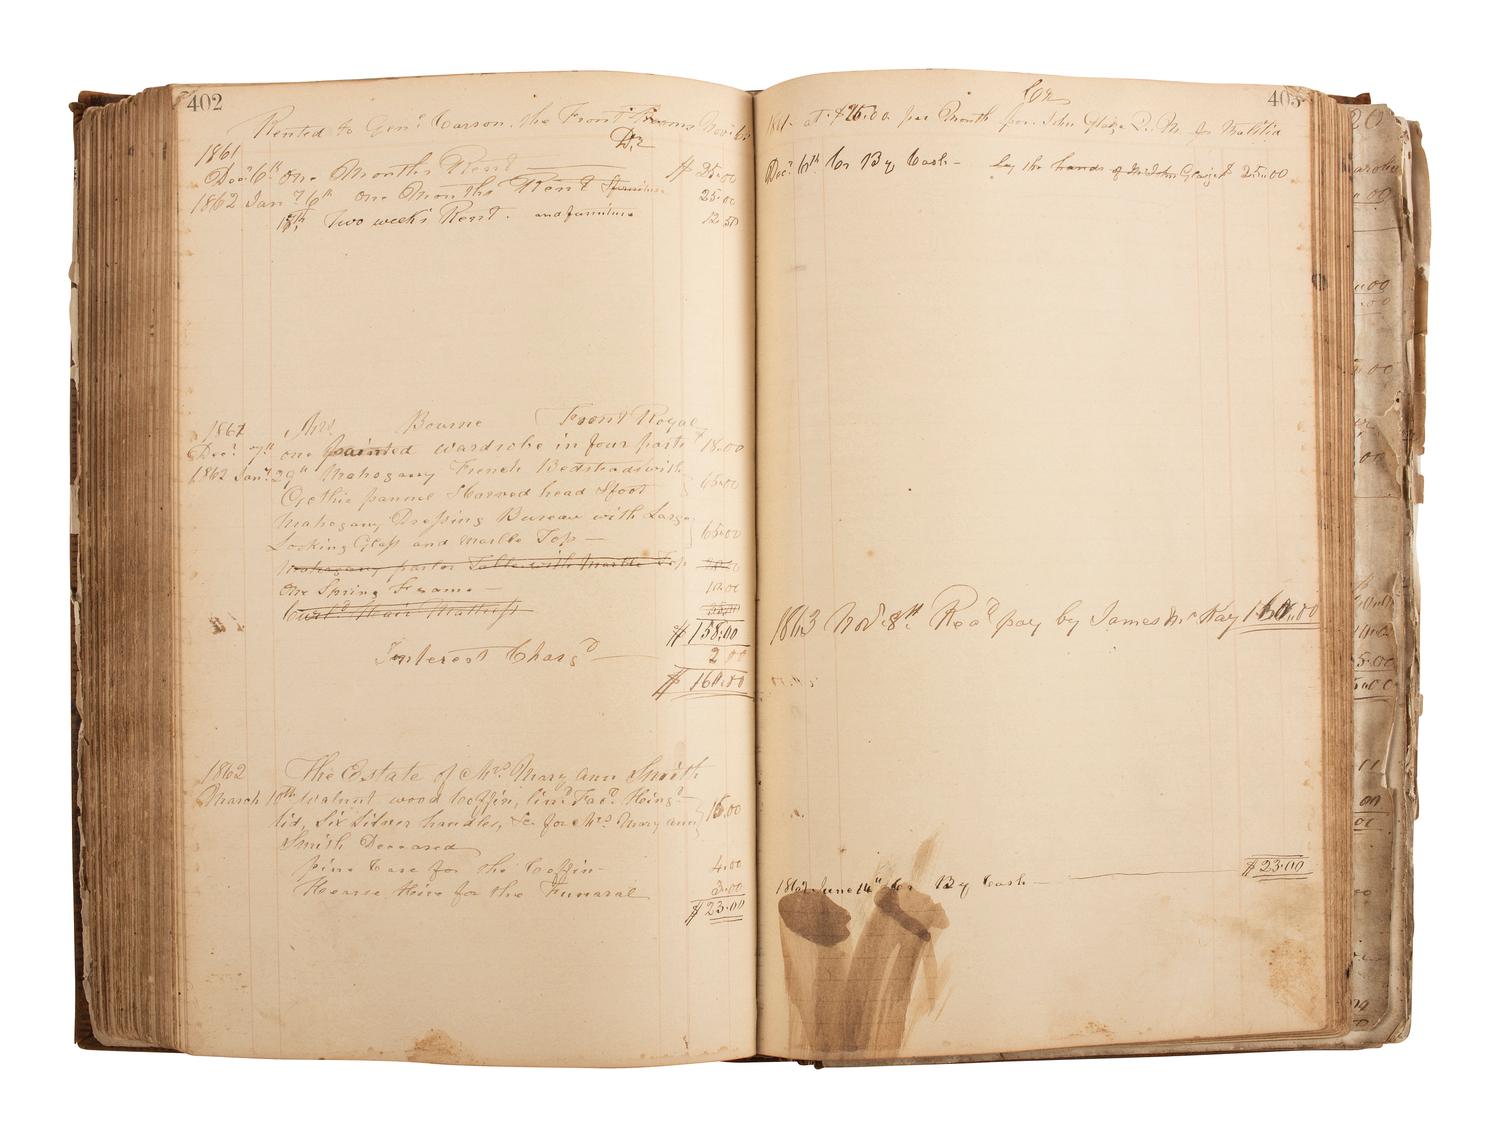 402
Rented to Genl Carson, the Front Rooms Nov. 6
Dr
1861
Decr 6th One Months Rent $ 25.00
1862 Jany 6th One Months Rent furniture 25.00
18th, Two weeks Rent. and furniture 12.50
1861 Mrs. Bourne Front Royal
Decr 7th one painted wardrobe in four parts $ 18.00
1862 Jany 29th Mahogany French Bedstead with
Gothic pannel & carved head & foot 65.00
Mahogany Dressing Bureau with Large
Looking Glass and Marble Top 65.00
Mahogany parlor Table with Marble Top
One Spring Frame 10.00
Hair Mattress
$ 158.00
Interest Chargd 2 00
$ 160.00
1862 The Estate of Mrs Mary Ann Smith
March 10th Walnut wood Coffin, lind Facd Hingd
lid, Six Silver handles, &c for Mrs Mary Ann 16.00
Smith Deceased
pine Case for the Coffin 4.00
Hearse Hire for the Funaral 3.00
$ 23.00
403
Cr
1861. at $25.00 per Month per John Q. M. for Malitia
Decr 6th Cr By Cash by the hands of Mr John $ 25.00
1863 Novr 8th Recd pay by James Mc Kay 160.00
$ 23.00
1862 June 14th Cr By Cash